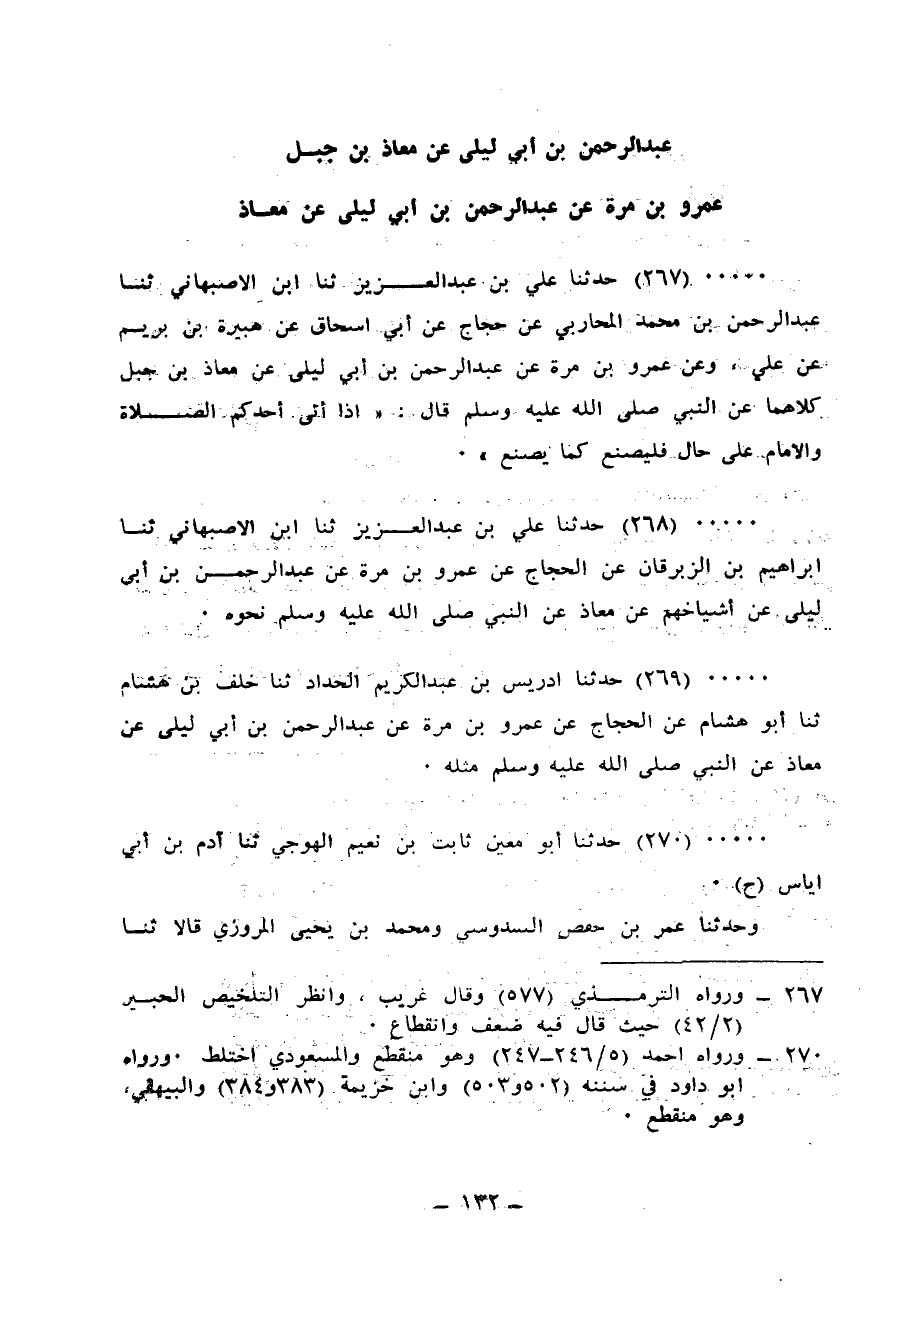 عبدالرحمن بن أبي ليلى عن معاذ بن جبـل
عمرو بن مرة عن عبدالرحمن بن أبي ليلى عن معـاذ
٠٠٠٠٠ (٢٦٧) حدثنا علي بن عبدالعـــزيز ثنا ابن الاصبهاني ثنـا
عبدالرحمن بن محمد المحاربي عن حجاج عن أبي اسحاق عن هبيرة بن بريـم
عن علي ، وعن عمرو بن مرة عن عبدالرحمن بن أبي ليلى عن معاذ بن جبل
كلاهما عن النبي صلى الله عليه وسلم قال : « اذا أتى أحدكم الصـــلاة
والامام على حال فليصنع كما يصنع » ٠
٠٠٠٠٠ (٢٦٨) حدثنا علي بن عبدالعـــزيز ثنا ابن الاصبهاني ثنـا
ابراهيم بن الزبرقان عن الحجاج عن عمرو بن مرة عن عبدالرحمــن بن أبي
ليلى عن أشياخهم عن معاذ عن النبي صلى الله عليه وسلم نحوه ٠
٠٠٠٠٠ (٢٦٩) حدثنا ادريس بن عبدالكريم الحداد ثنا خلف بن هشام
ثنا أبو هشام عن الحجاج عن عمرو بن مرة عن عبدالرحمن بن أبي ليلى عن
معاذ عن النبي صلى الله عليه وسلم مثله ٠
٠٠٠٠٠ (٢٧٠) حدثنا أبو معين ثابت بن نعيم الهوجي ثنا آدم بن أبي
اياس (ح) ٠
وحدثنا عمر بن حفص السدوسي ومحمد بن يحيى المروزي قالا ثنـا
٢٦٧ ــ ورواه الترمــذي (٥٧٧) وقال غريب ، وانظر التلخيص الحبـير
(٤٢/٢) حيث قال فيه ضعف وانقطاع ٠
٢٧٠ ــ ورواه احمد (٢٤٦/٥ــ٢٤٧) وهو منقطع والمسعودي اختلط ٠ ورواه
ابو داود في سننه (٥٠٢و٥٠٣) وابن خزيمة (٣٨٣و٣٨٤) والبيهقي،
وهو منقطع ٠
ــ ١٣٢ ــ